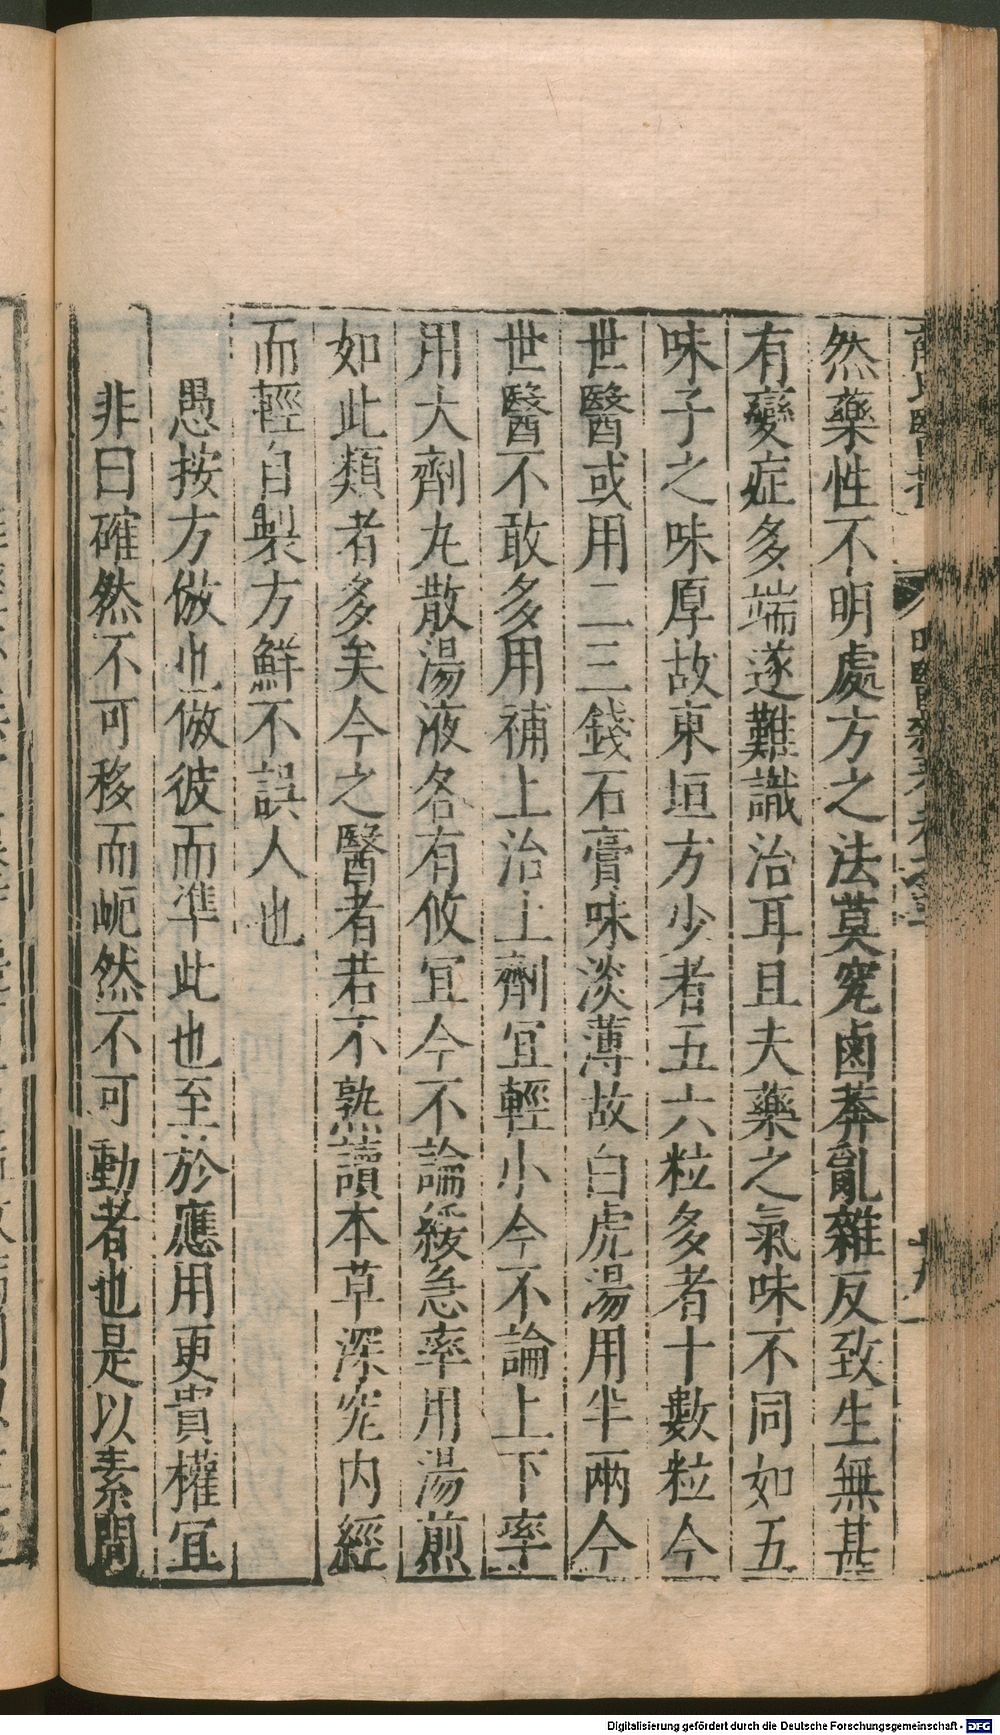 然藥性不明處方之法莫究鹵莽亂雜反致生無甚
有變症多端遂難識治耳且夫藥之氣味不同如五
味子之味厚故東垣方少者五六粒多者十數粒今
世醫或用二三錢石膏味淡薄故白虎湯用半兩今
世醫不敢多用補上治上劑宜輕小今不論上下率
用大劑丸散湯液各有攸宜今不論緩急率用湯煎
如此類者多矣今之醫者若不熟讀本草深究内經
而輕自製方鮮不誤人也
愚按方倣也倣彼而準此也至於應用更貴權宜
非曰確然不可移而屹然不可動者也是以素問
Digitalisierung gefördert durch die Deutsche Forschungsgemeinschaft - DFG